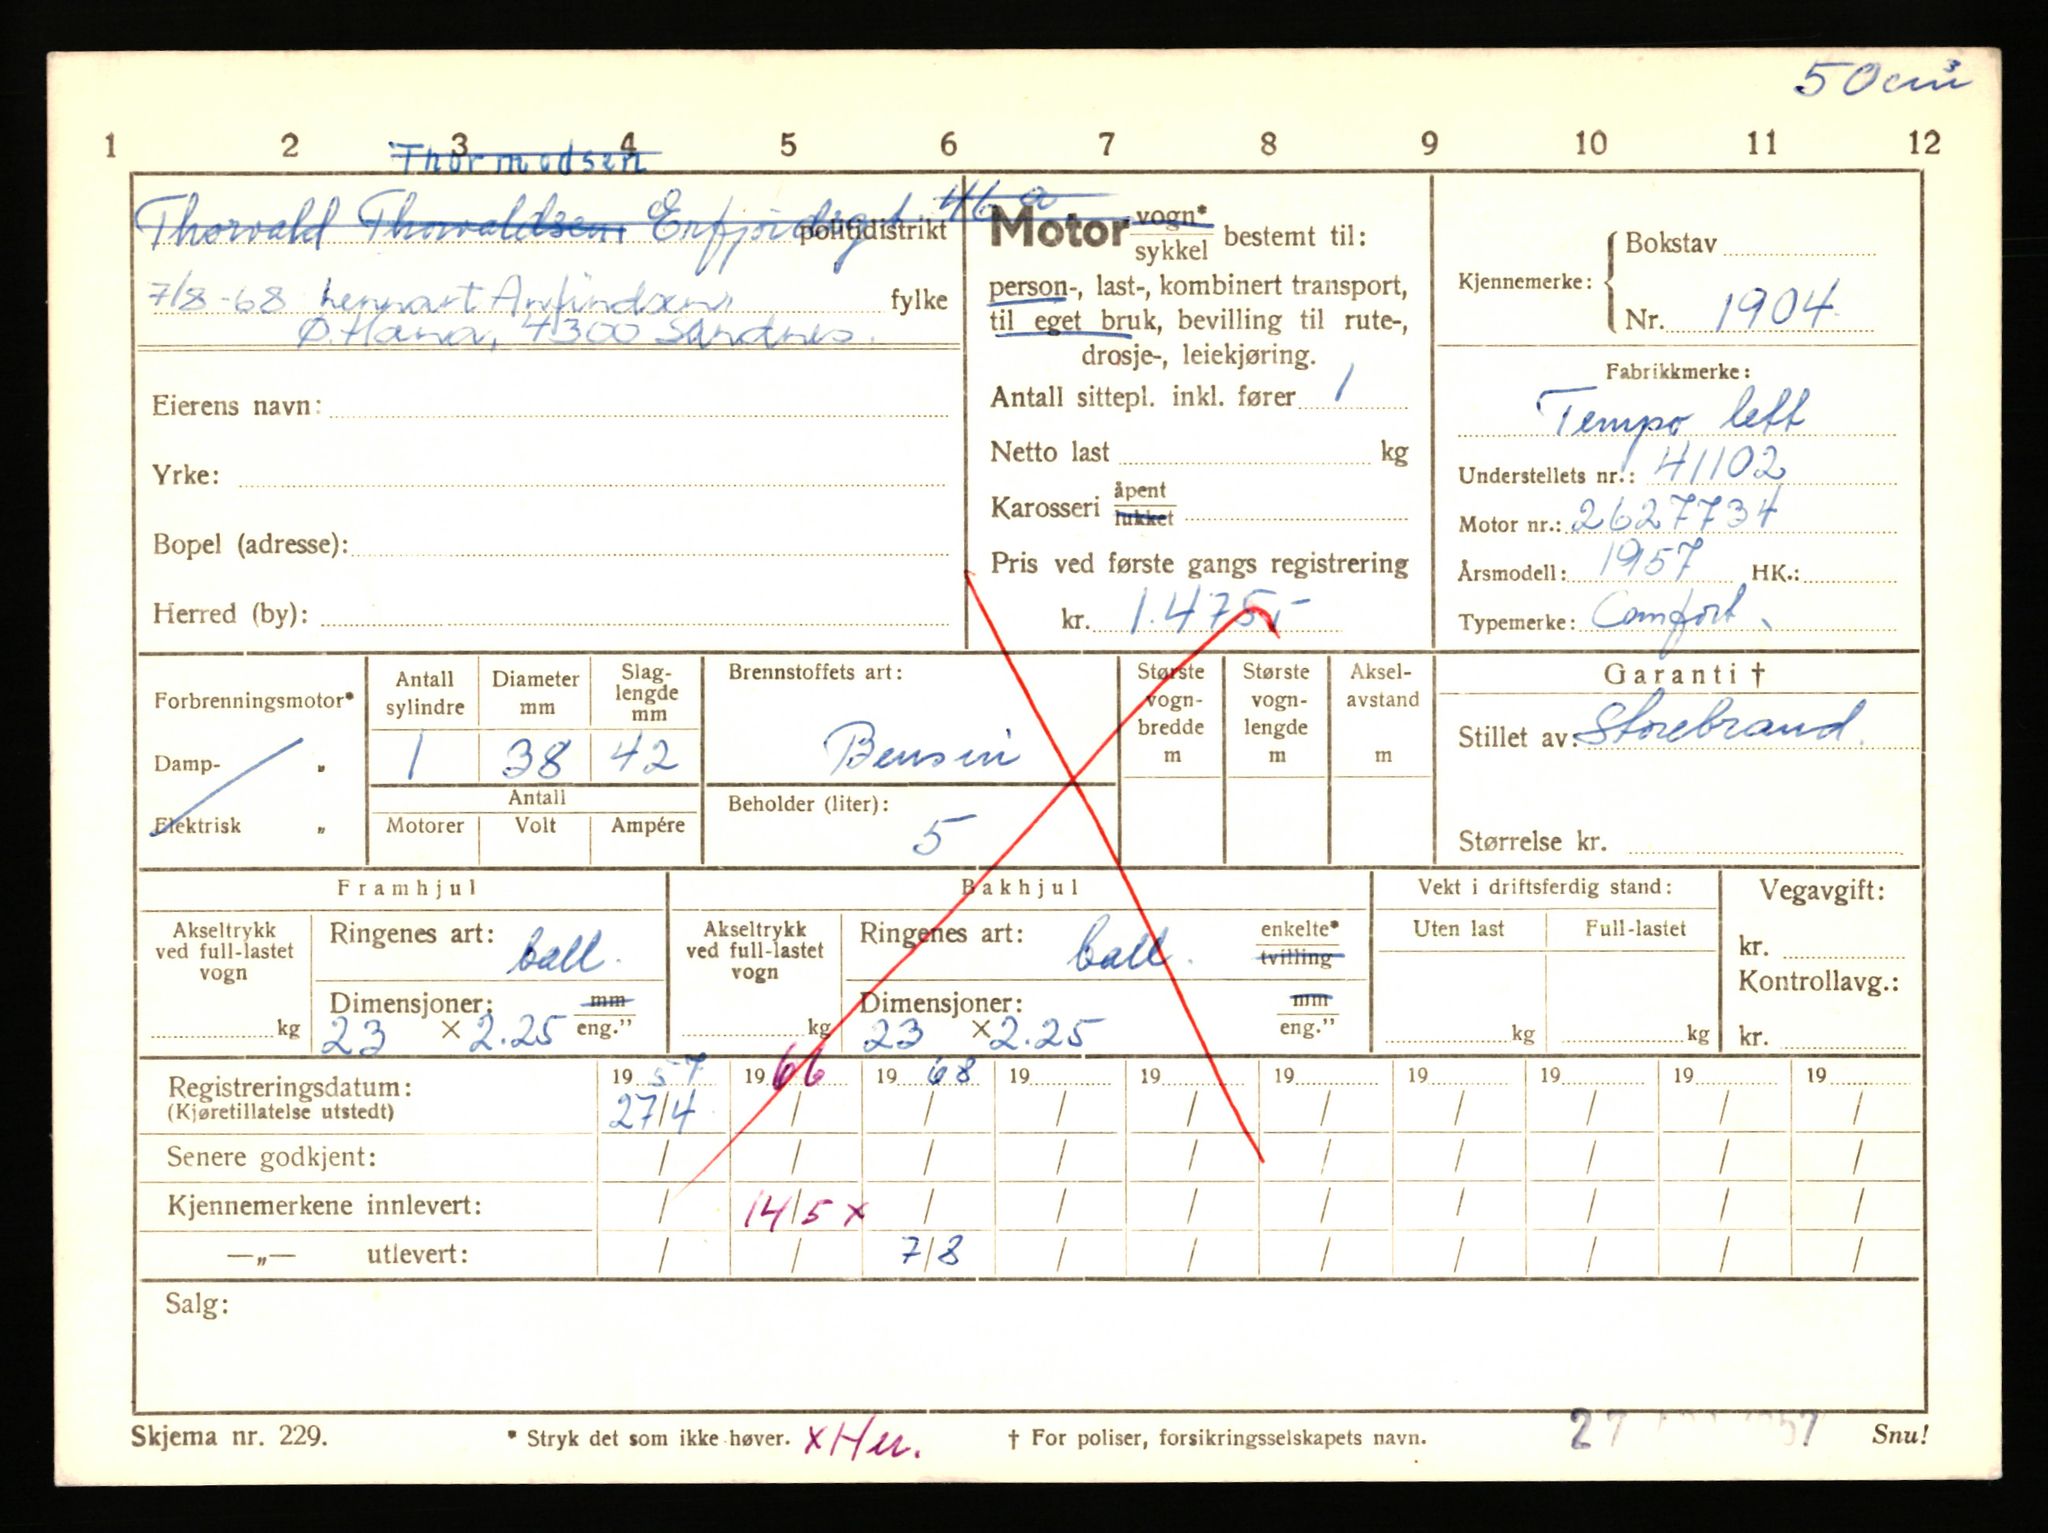 50cm³
1 2 3 4 5 6 7 8 9 10 11 12
Thormodsen
Thorvald Thorvaldsen, Erfjordsgt 46 a
politidistrikt
7/8-68 Lennart Anfindsen,
fylke
Ø. Hana, 4300 Sandnes.
Eierens navn:
Yrke:
Bopel (adresse):
Herred (by):
Motor vogn* sykkel bestemt til:
person-, last-, kombinert transport,
til eget bruk, bevilling til rute-,
drosje-, leiekjøring.
Antall sittepl. inkl. fører 1
Netto last kg
Karosseri åpent lukket
Pris ved første gangs registrering
kr. 1.475,-
Kjennemerke: Bokstav
Nr. 1904
Fabrikkmerke:
Tempo lett
Understellets nr.: 41102
Motor nr.: 2627734
Årsmodell: 1957 HK.:
Typemerke: Comfort
Forbrenningsmotor*
Damp- „
Elektrisk „
Antall sylindre
Diameter mm
Slag-lengde mm
1 38 42
Antall
Motorer Volt Ampére
Brennstoffets art:
Bensin
Beholder (liter):
5
Største vogn-bredde m
Største vogn-lengde m
Aksel-avstand m
Garanti †
Stillet av: Storebrand.
Størrelse kr.
Framhjul
Akseltrykk ved full-lastet vogn
kg
Ringenes art: ball.
Dimensjoner: mm
23 x 2.25 eng."
Bakhjul
Akseltrykk ved full-lastet vogn
kg
Ringenes art: ball. enkelte* tvilling
Dimensjoner: mm
23 x 2.25 eng."
Vekt i driftsferdig stand:
Uten last Full-lastet
kg kg
Vegavgift:
kr.
Kontrollavg.:
kr.
Registreringsdatum: 1957 1966 1968 19 19 19 19 19 19 19
(Kjøretillatelse utstedt) 27/4 / / / / / / / / /
Senere godkjent: / / / / / / / / / /
Kjennemerkene innlevert: / 14/5 x / / / / / / / /
—„— utlevert: / / 7/8 / / / / / / /
Salg:
Skjema nr. 229.
* Stryk det som ikke høver. x Her.
† For poliser, forsikringsselskapets navn.
27 57
Snu!